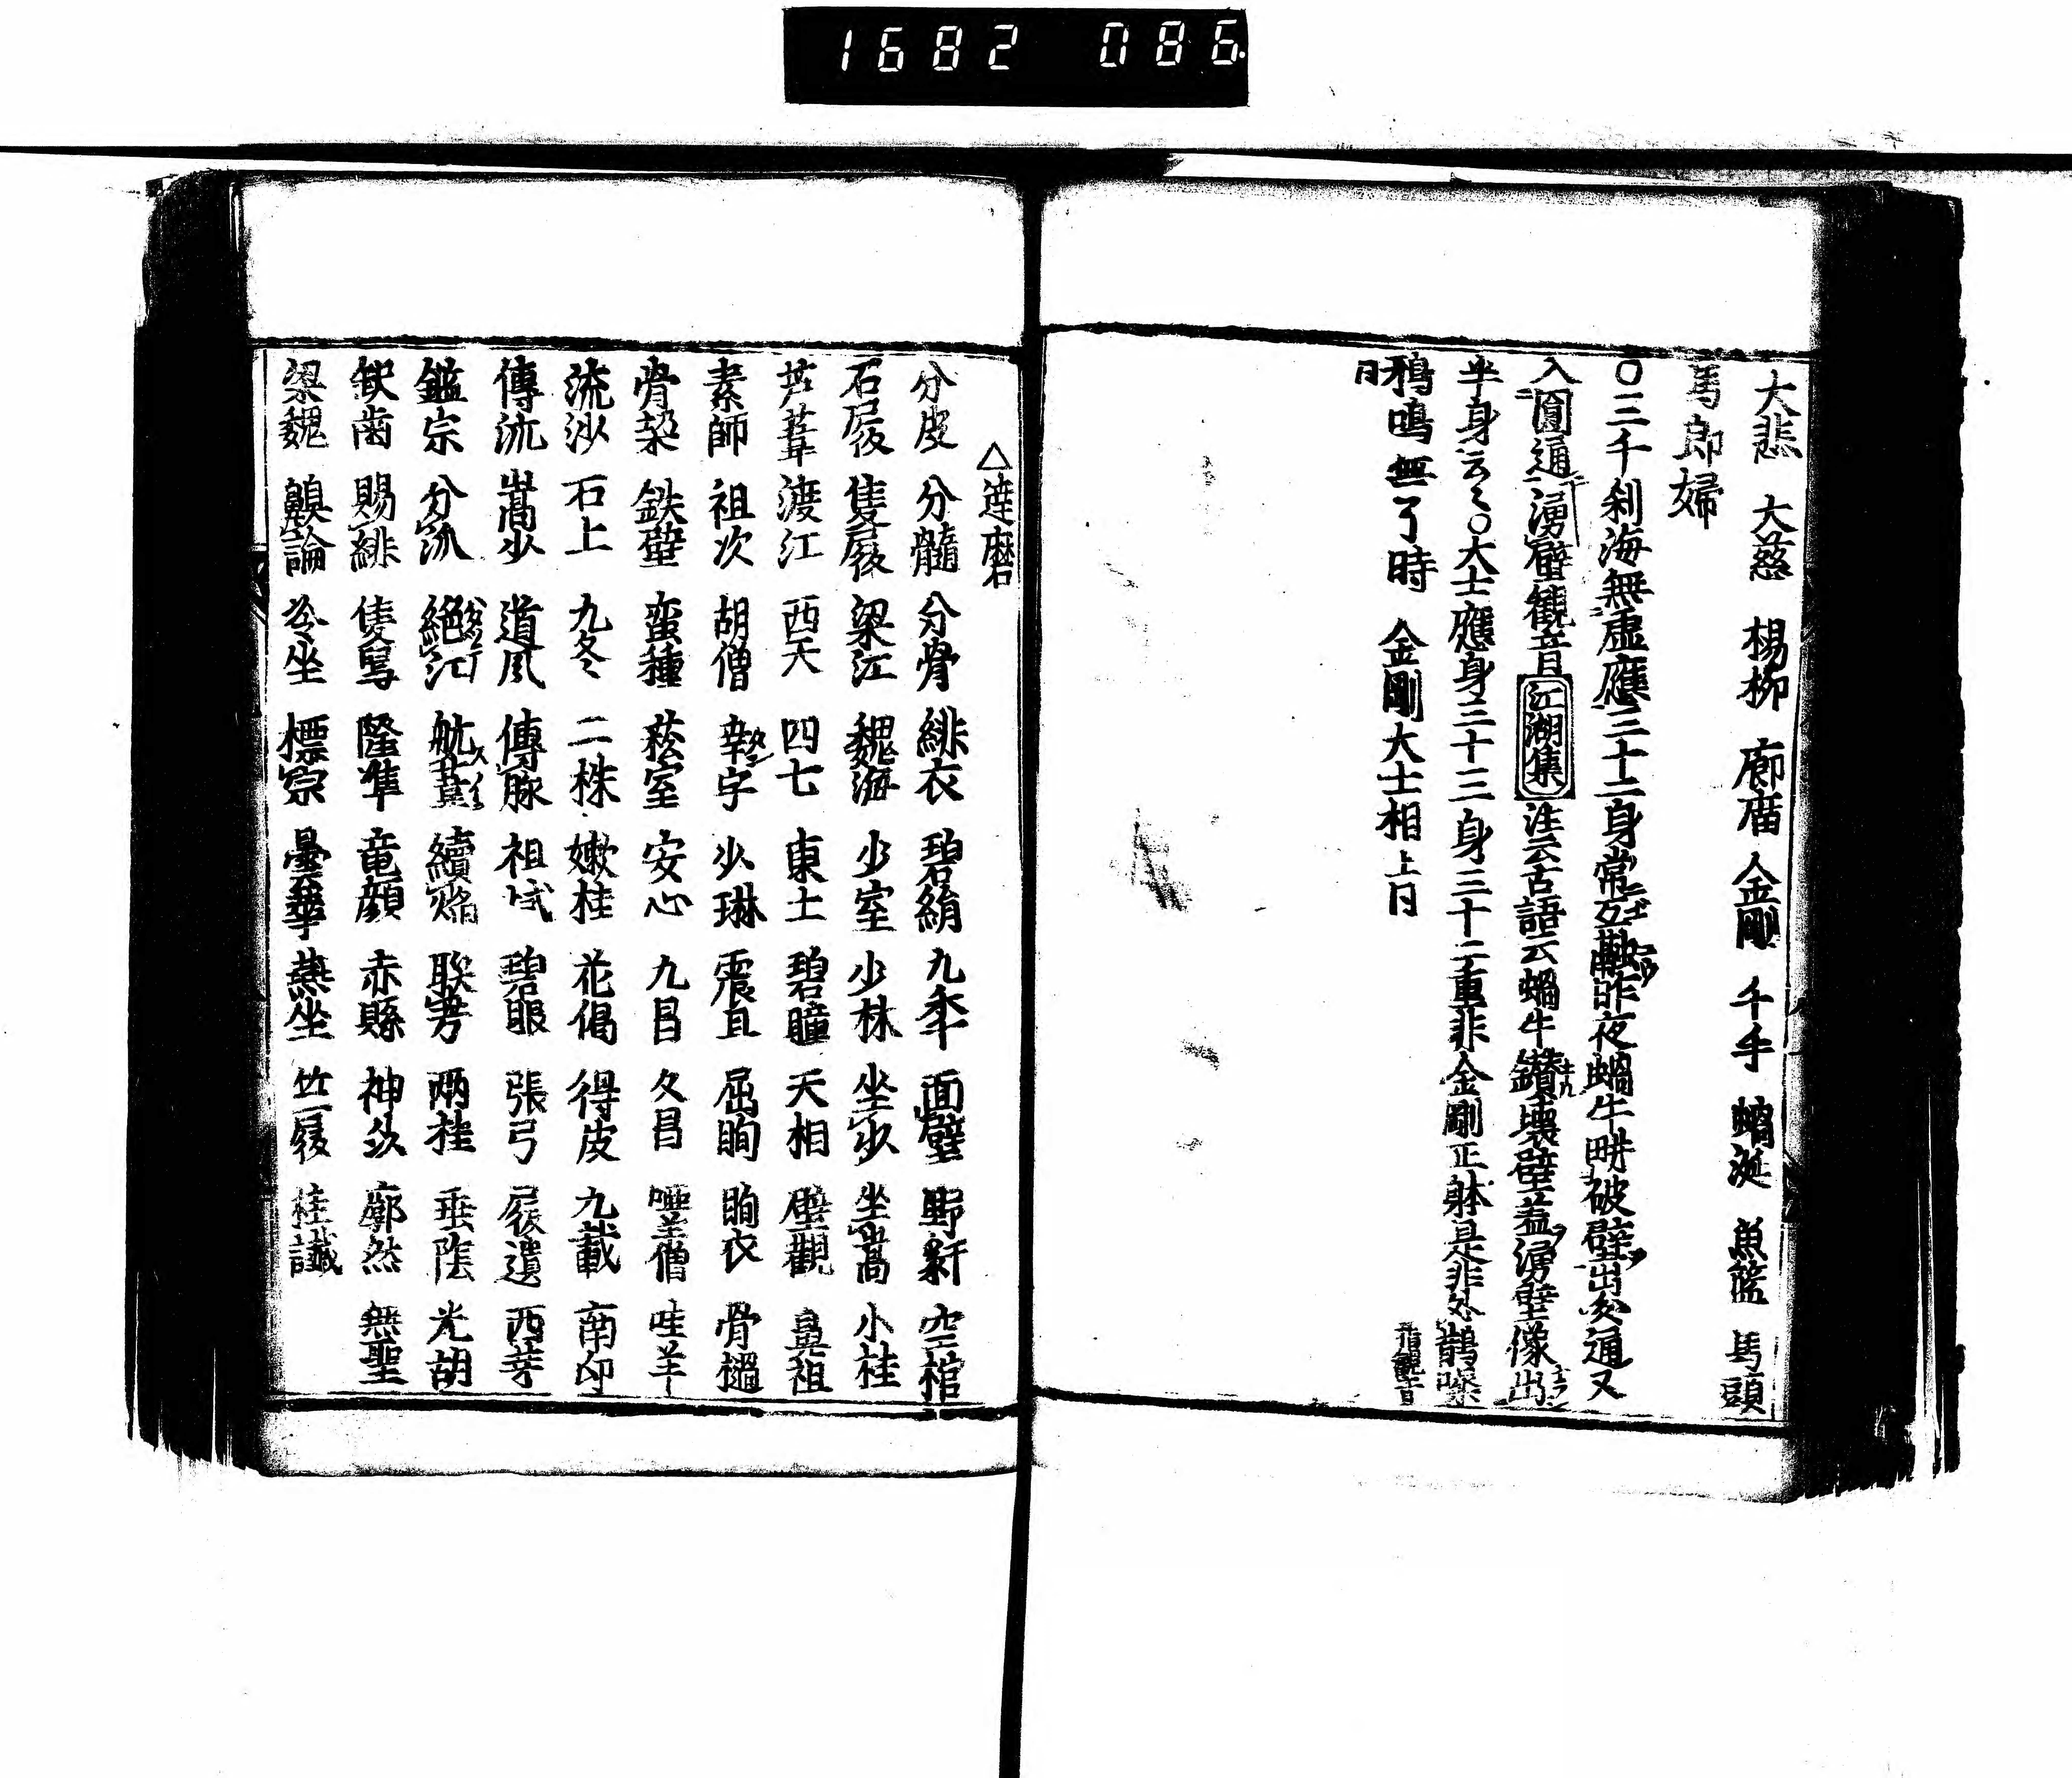 1682 086
大悲 大慈 楊柳 廊庿 金剛 千手 蝸涎 魚籃 馬頭
馬郎婦
〇三千刹海無虚應三十二身常互 昨夜蝸牛 破壁出 通又
入圓通湧壁観音江湖集注云古語云蝸牛鑚壊壁蓋湧壁像出
半身云〻〇大士應身三十三身三十二重非金剛正躰是非处鵲噪
鴉鳴無了時 金剛大士相 上日 指観音
日
△達磨
分皮 分髓 分骨 緋衣 碧絹 九年 面壁 野 空棺
石履 隻履 梁江 魏海 少室 少林 坐少 坐嵩 小桂
芦葦 渡江 西天 四七 東土 碧瞳 天相 壁觀 鼻祖
素師 祖次 胡僧 幸字 少琳 震旦 屈眴 眴衣 骨
骨 鉄壁 蛮種 菘室 安心 九昌 久昌 啞羊僧 哇羊
流沙 石上 九冬 二株 嫩桂 花偈 得皮 九載 南印
傳流 嵩少 道風 傳脉 祖 碧眼 張弓 履遺 西芽
鑑宗 分流 絶江 航葦 續焔 聯芳 兩桂 垂陰 光胡
缺歯 賜緋 隻舄 隆準 竜顔 赤縣 神 廓然 無聖
梁魏 論 坐 標宗 曇華 熱坐 竺履 桂讖